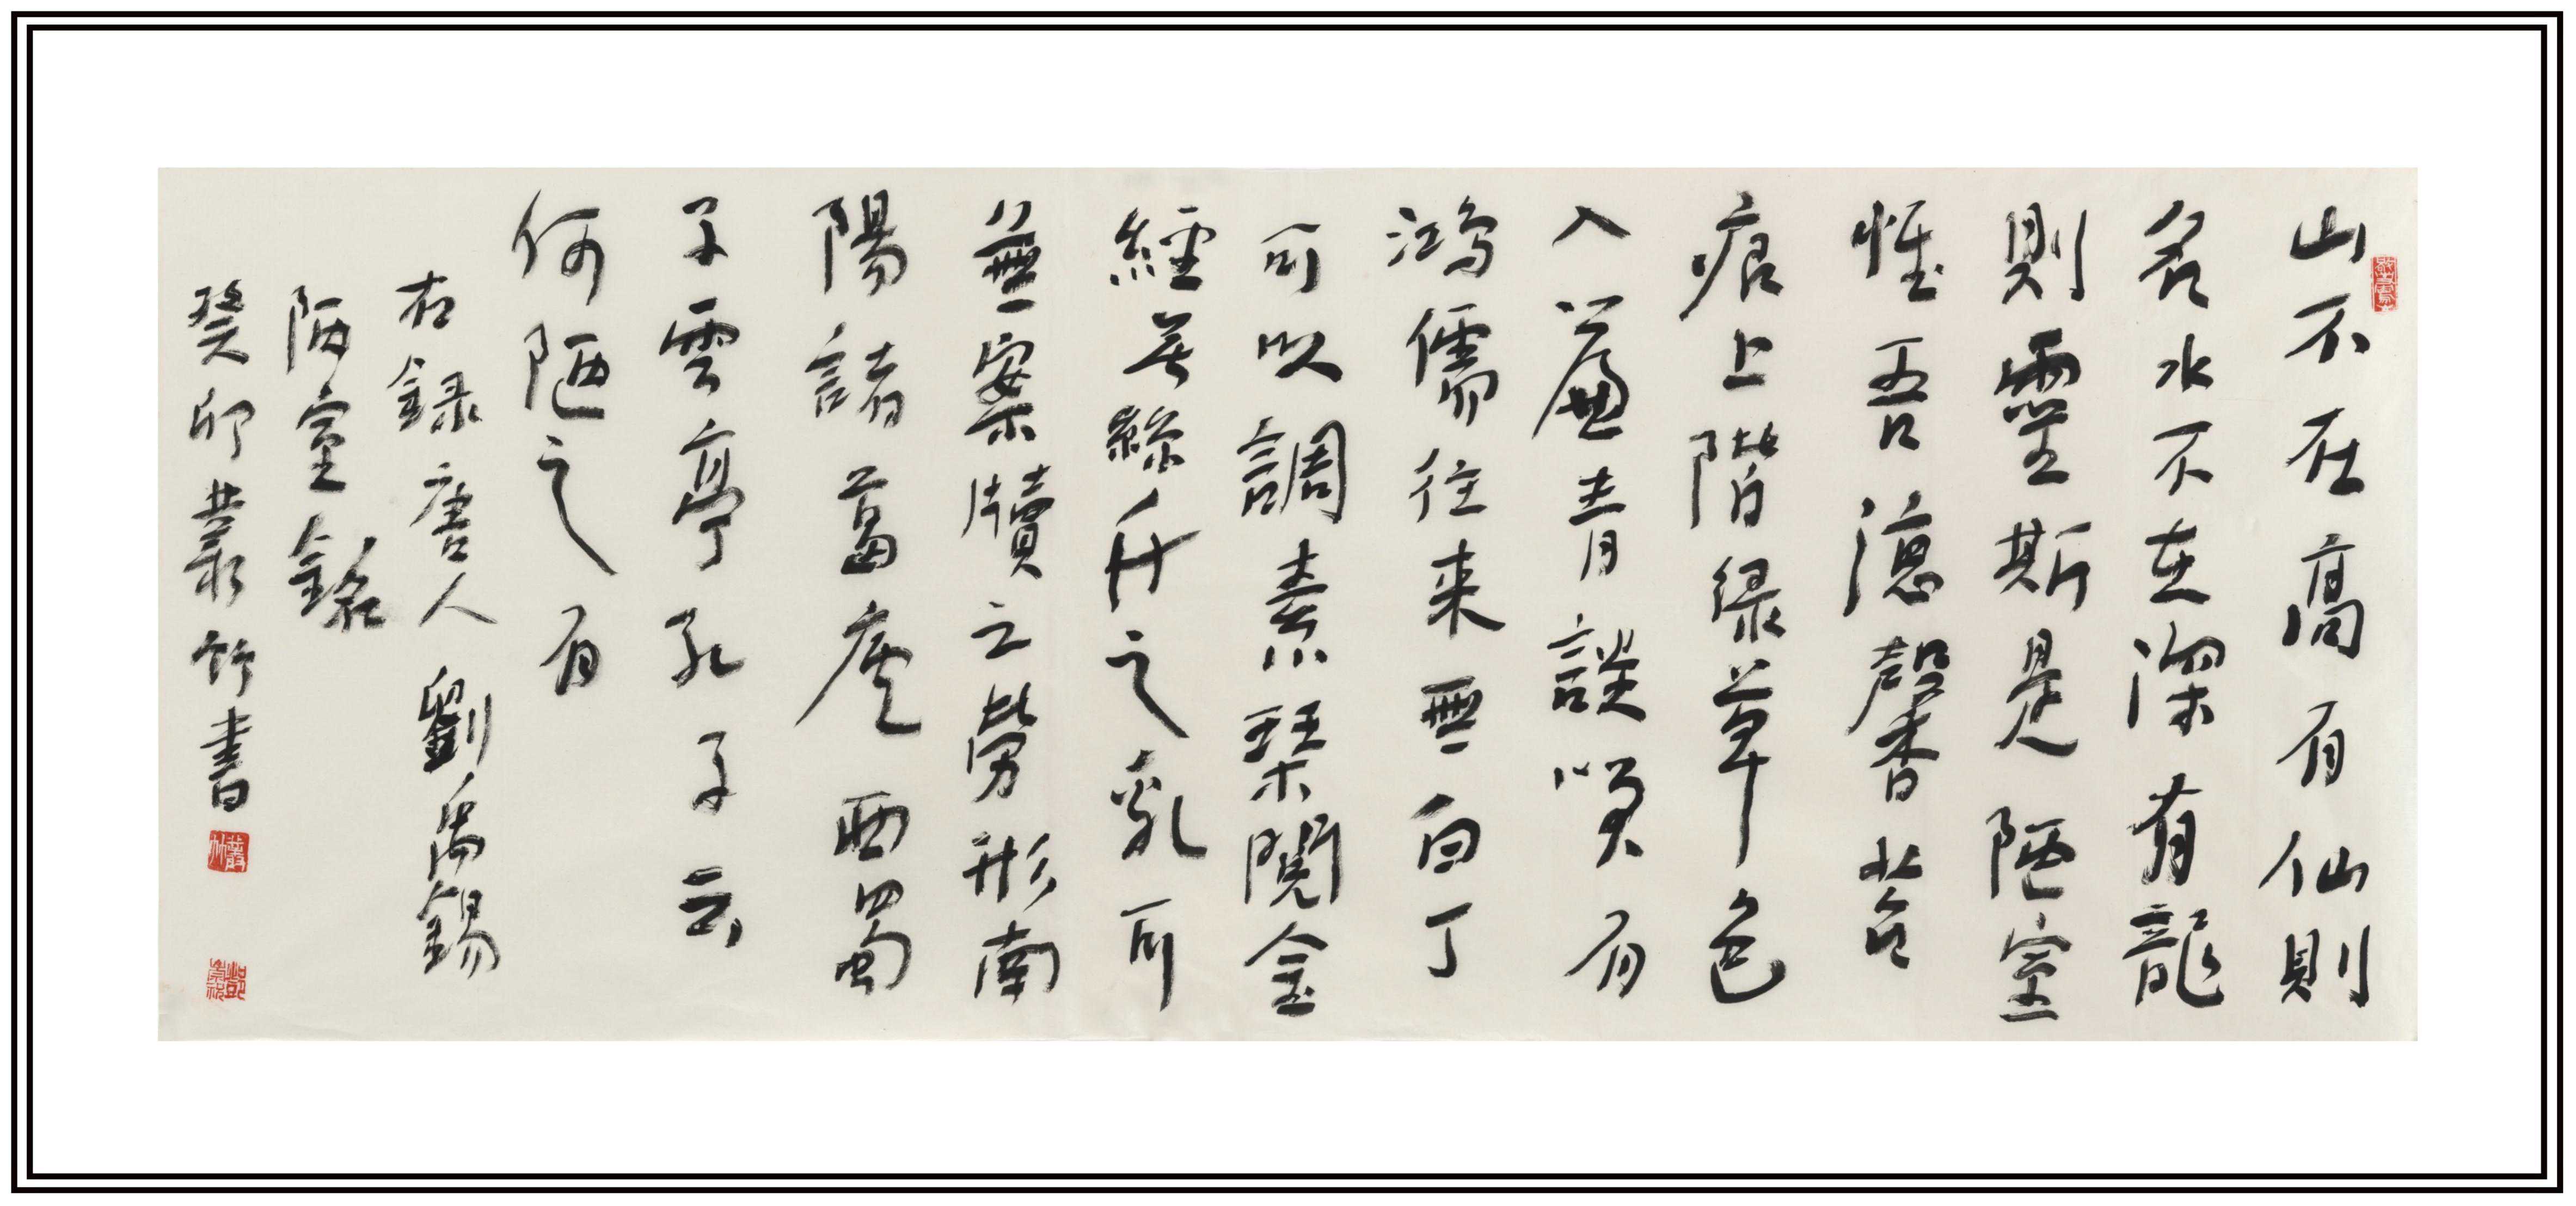 山不在高有仙則
名水不在深有龍
則靈斯是陋室
惟吾德馨苔
痕上階緑草色
入簾青談笑有
鴻儒往来無白丁
可以調素琴閱金
經無絲竹之亂耳
無案牘之勞形南
陽諸葛廬西蜀
子雲亭孔子云
何陋之有
右録唐人劉禹錫
陋室銘
癸卯叢竹書
叢竹